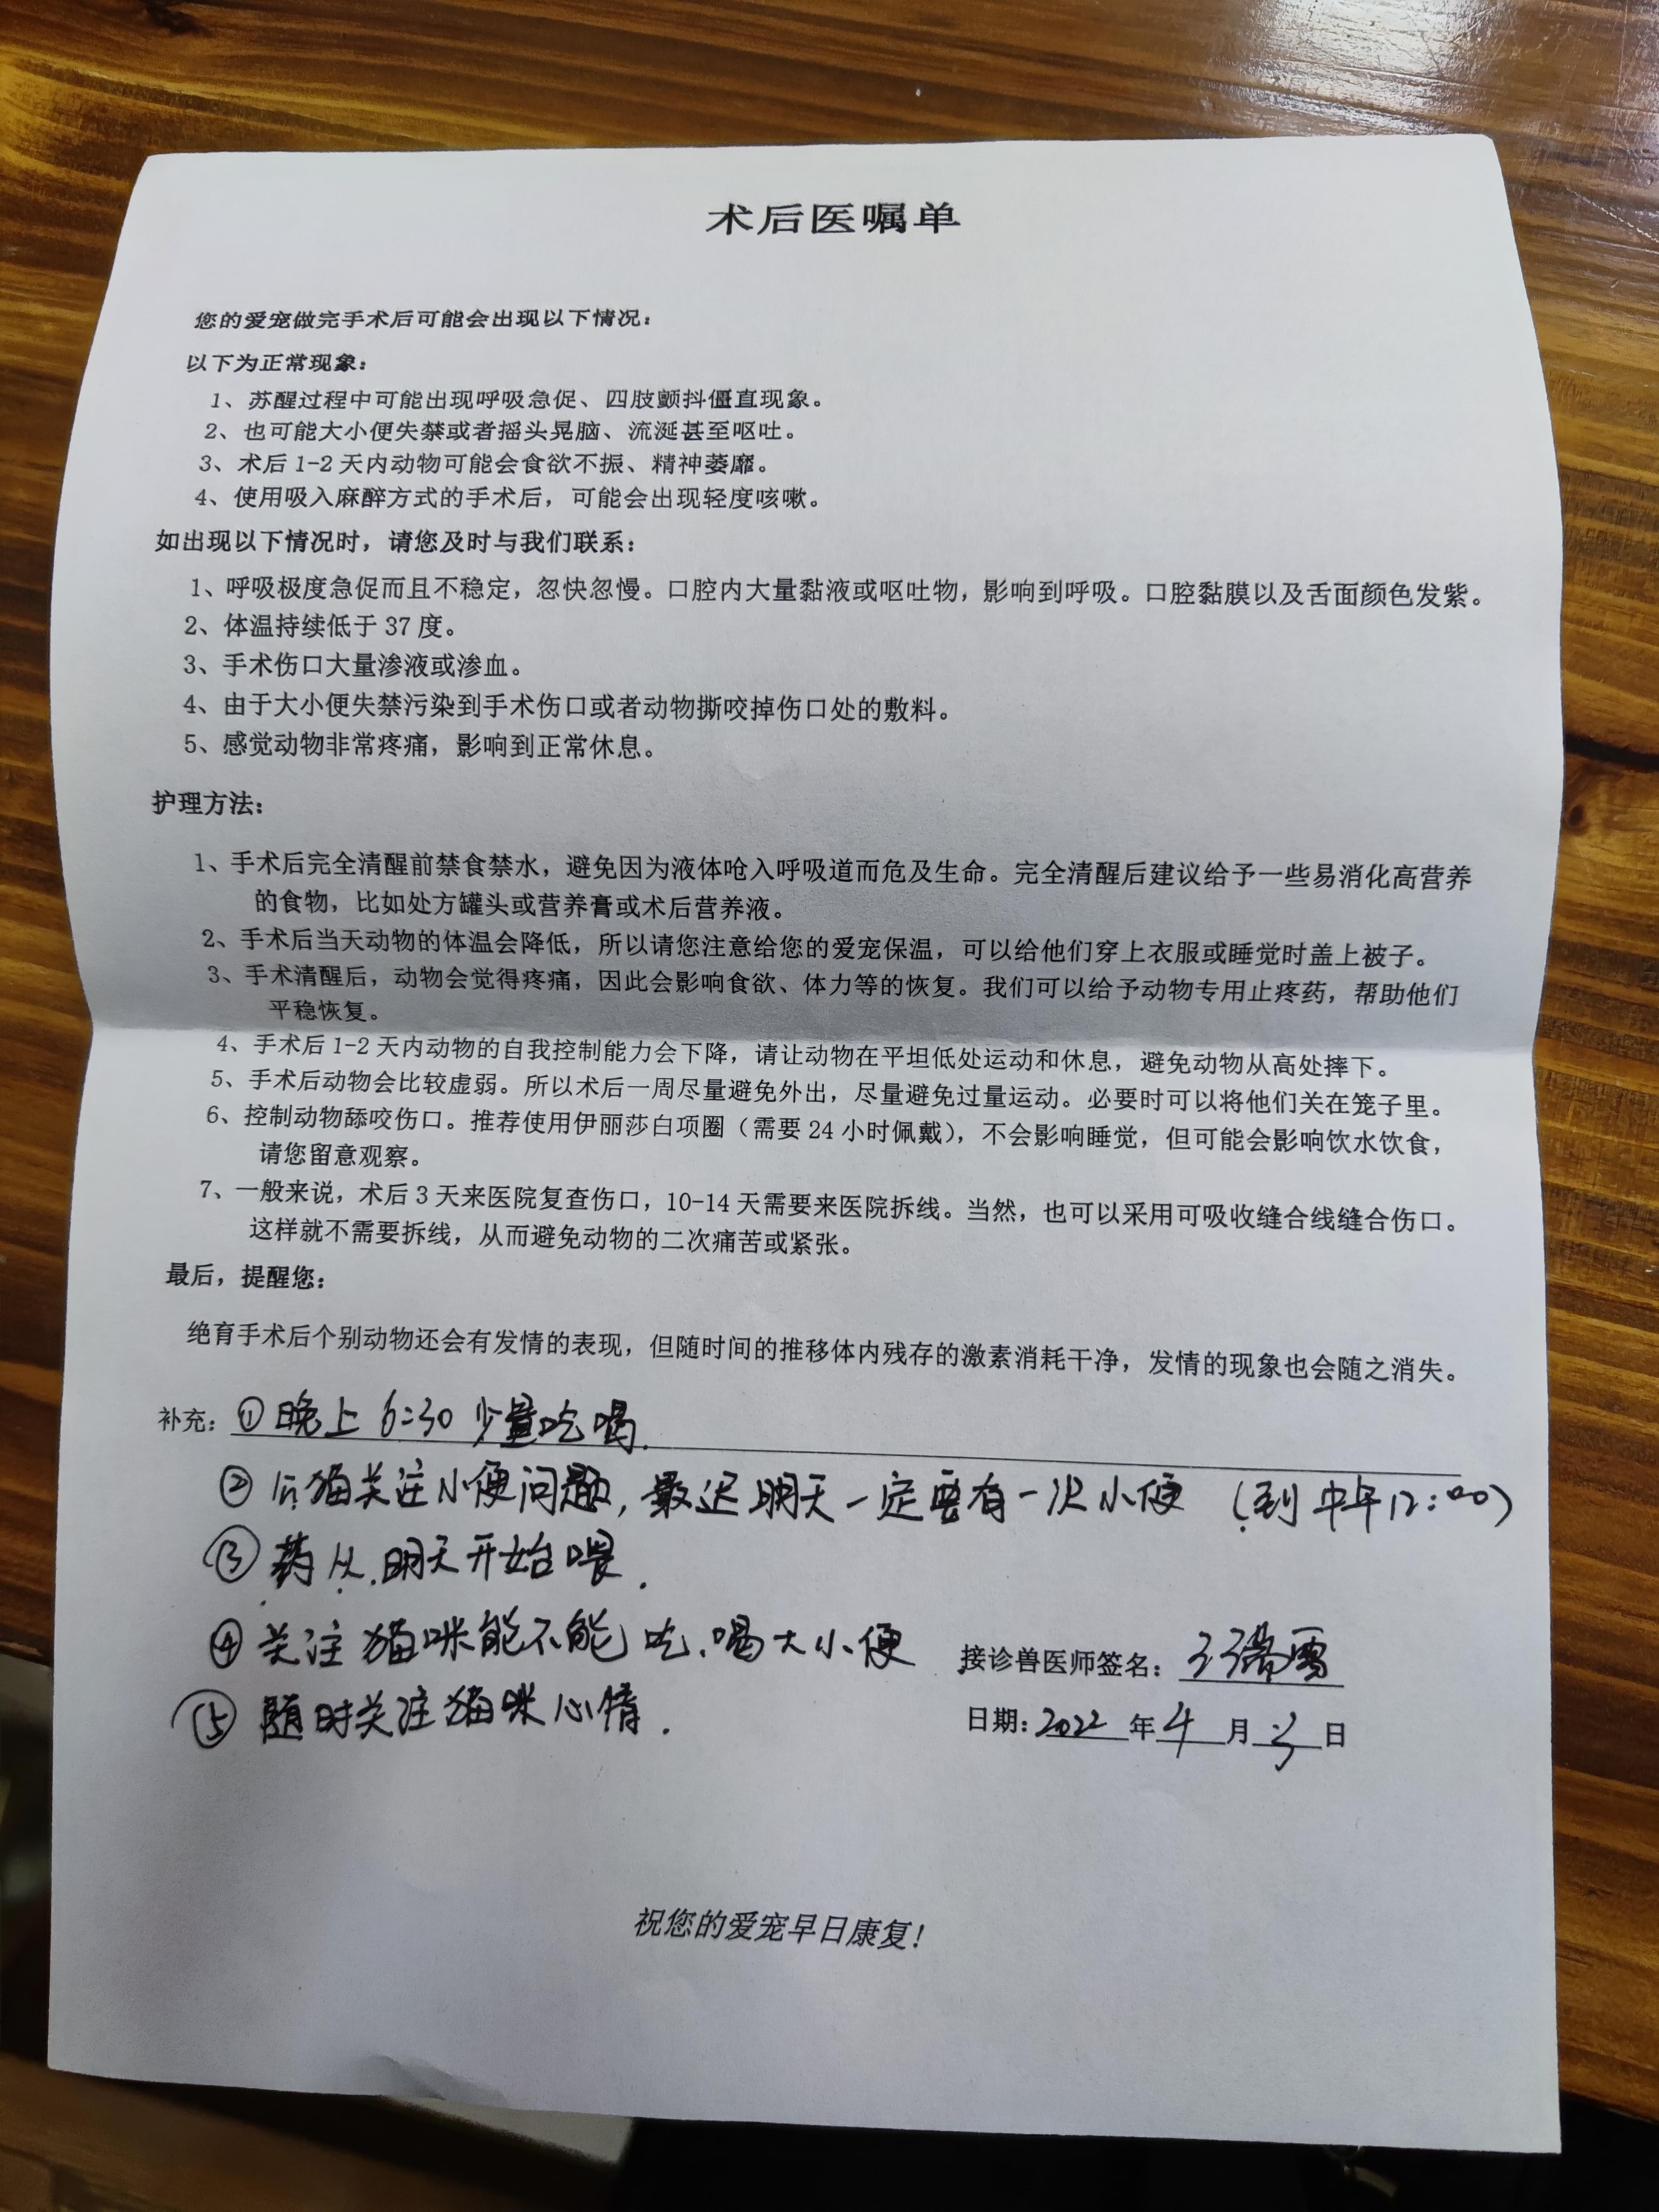 术后医嘱单
您的爱宠做完手术后可能会出现以下情况：
以下为正常现象：
1、苏醒过程中可能出现呼吸急促、四肢颤抖僵直现象。
2、也可能大小便失禁或者摇头晃脑、流涎甚至呕吐。
3、术后1-2天内动物可能会食欲不振、精神萎靡。
4、使用吸入麻醉方式的手术后，可能会出现轻度咳嗽。
如出现以下情况时，请您及时与我们联系：
1、呼吸极度急促而且不稳定，忽快忽慢。口腔内大量黏液或呕吐物，影响到呼吸。口腔黏膜以及舌面颜色发紫。
2、体温持续低于37度。
3、手术伤口大量渗液或渗血。
4、由于大小便失禁污染到手术伤口或者动物撕咬掉伤口处的敷料。
5、感觉动物非常疼痛，影响到正常休息。
护理方法：
1、手术后完全清醒前禁食禁水，避免因为液体呛入呼吸道而危及生命。完全清醒后建议给予一些易消化高营养
的食物，比如处方罐头或营养膏或术后营养液。
2、手术后当天动物的体温会降低，所以请您注意给您的爱宠保温，可以给他们穿上衣服或睡觉时盖上被子。
3、手术清醒后，动物会觉得疼痛，因此会影响食欲、体力等的恢复。我们可以给予动物专用止疼药，帮助他们
平稳恢复。
4、手术后1-2天内动物的自我控制能力会下降，请让动物在平坦低处运动和休息，避免动物从高处摔下。
5、手术后动物会比较虚弱。所以术后一周尽量避免外出，尽量避免过量运动。必要时可以将他们关在笼子里。
6、控制动物舔咬伤口。推荐使用伊丽莎白项圈（需要24小时佩戴），不会影响睡觉，但可能会影响饮水饮食，
请您留意观察。
7、一般来说，术后3天来医院复查伤口，10-14天需要来医院拆线。当然，也可以采用可吸收缝合线缝合伤口。
这样就不需要拆线，从而避免动物的二次痛苦或紧张。
最后，提醒您：
绝育手术后个别动物还会有发情的表现，但随时间的推移体内残存的激素消耗干净，发情的现象也会随之消失。
补充：①晚上6:30少量吃喝.
②后猫关注小便问题，最迟明天一定要有一次小便（到中午12:00）
③药从明天开始喂.
④关注猫咪能不能吃.喝大小便
接诊兽医师签名：
⑤随时关注猫咪心情.
日期：2022年4月3日
祝您的爱宠早日康复！